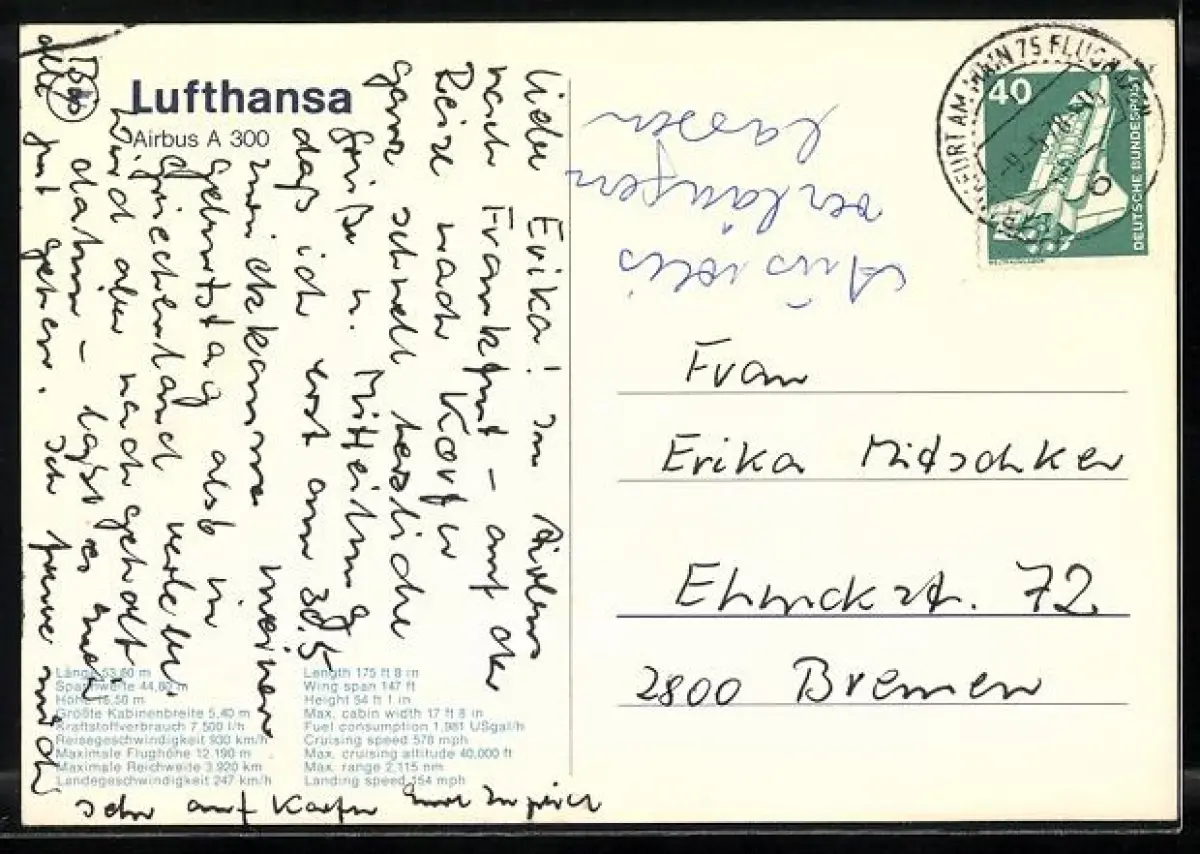 Lufthansa
Airbus A 300
Liebe Erika! Im Airbus
nach Frankfurt - auf der
Reise nach Korfu
ganz schnell herzliche
Grüße u. Mitteilung
daß ich erst am 30.5
zurückkomme meinen
Geburtstag also in
Griechenland verlebe.
Wird aber nachgeholt
dahin - laßt es
gut gehen. Ich freue mich
sehr auf Korfu
40
DEUTSCHE BUNDESPOST
FURT AM MAIN 75 FLUGHAFEN
Ausweis
verlängern
lassen
Frau
Erika Mitschker
Ehmckstr. 72
2800 Bremen
Länge 53,60 m
Spannweite 44,80 m
Höhe 16,50 m
Größte Kabinenbreite 5,40 m
Kraftstoffverbrauch 7 500 l/h
Reisegeschwindigkeit 930 km/h
Maximale Flughöhe 12 190 m
Maximale Reichweite 3 920 km
Landegeschwindigkeit 247 km/h
Length 175 ft 8 in
Wing span 147 ft
Height 54 ft 1 in
Max. cabin width 17 ft 8 in
Fuel consumption 1,981 USgal/h
Cruising speed 578 mph
Max. cruising altitude 40,000 ft
Max. range 2,115 nm
Landing speed 154 mph